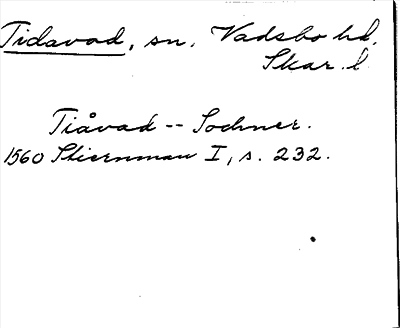 Tidavad, sn. Vadsbo hd.
Skar. l.
Tiåvad -- Sochner.
1560 Stiernman I, s. 232.